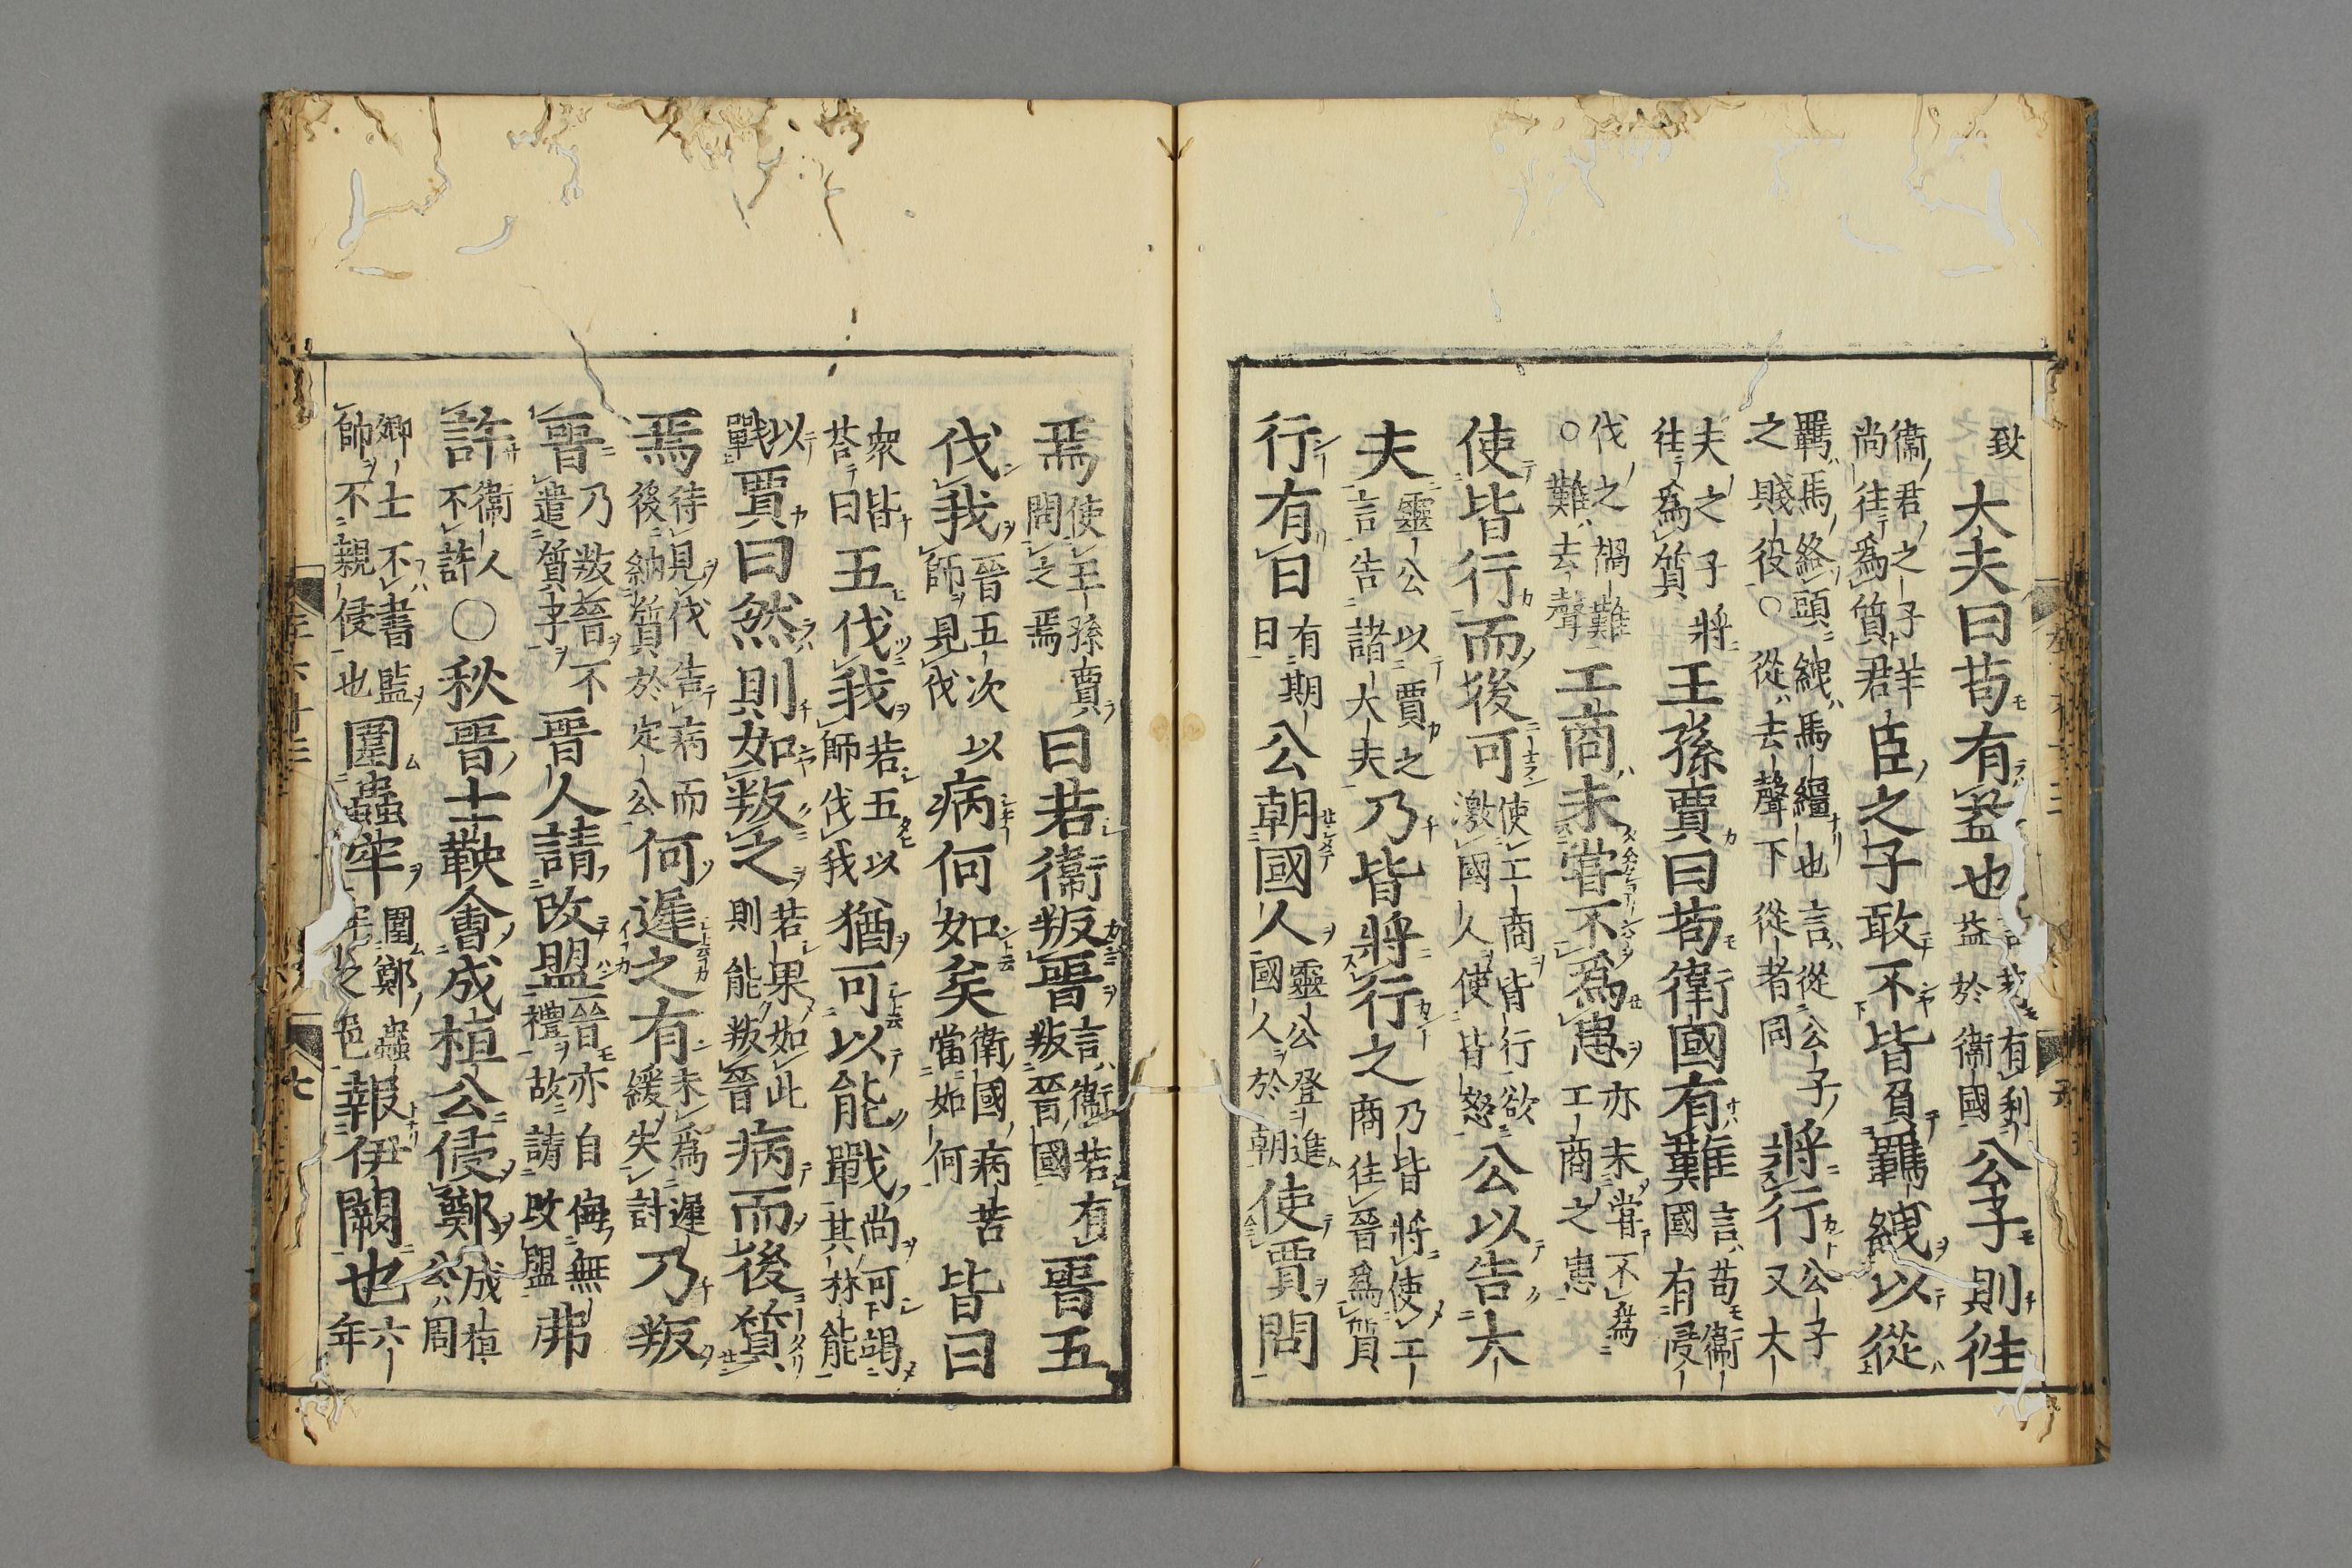 致　大夫曰苟有益也有利益於衞國公子則徃
衞君之子尚往爲質群臣之子敢不皆負羈絏以從
羈馬絡頭絏馬繮也言從公子之賤役○從去聲下從者同將行公子又大
夫之子將往爲質王孫賈曰苟衛國有難言苟衞國有侵
伐之禍難○難去聲工商未嘗不爲患亦未嘗不爲工商之患
使皆行而後可使工商皆行欲激國人使皆怒公以告大
夫靈公以賈之言告諸大夫乃皆將行之乃皆將使工商往晉爲質
行有日有期日公朝國人靈公登進國人於朝使賈問
焉使王孫賈問之焉曰若衞叛晉言衞若有叛晉國晉五
伐我晉五次以師見伐病何如矣衛國病苦當如何皆曰
衆皆荅曰五伐我若五以師伐我猶可以能戰尚可竭其林能
以戰賈曰然則如叛之若果如此則能叛晉病而後質
焉待見伐告病而後納質於定公何遲之有未爲遲緩失計乃叛
晉乃叛晉不遣質子晉人請改盟晉亦自侮無禮故請改盟弗
許衞人不許○秋晉士鞅會成桓公侵鄭成桓公周
卿士不書監師不親侵也圍蟲牢圍鄭蟲牢之邑報伊闕也六年
七